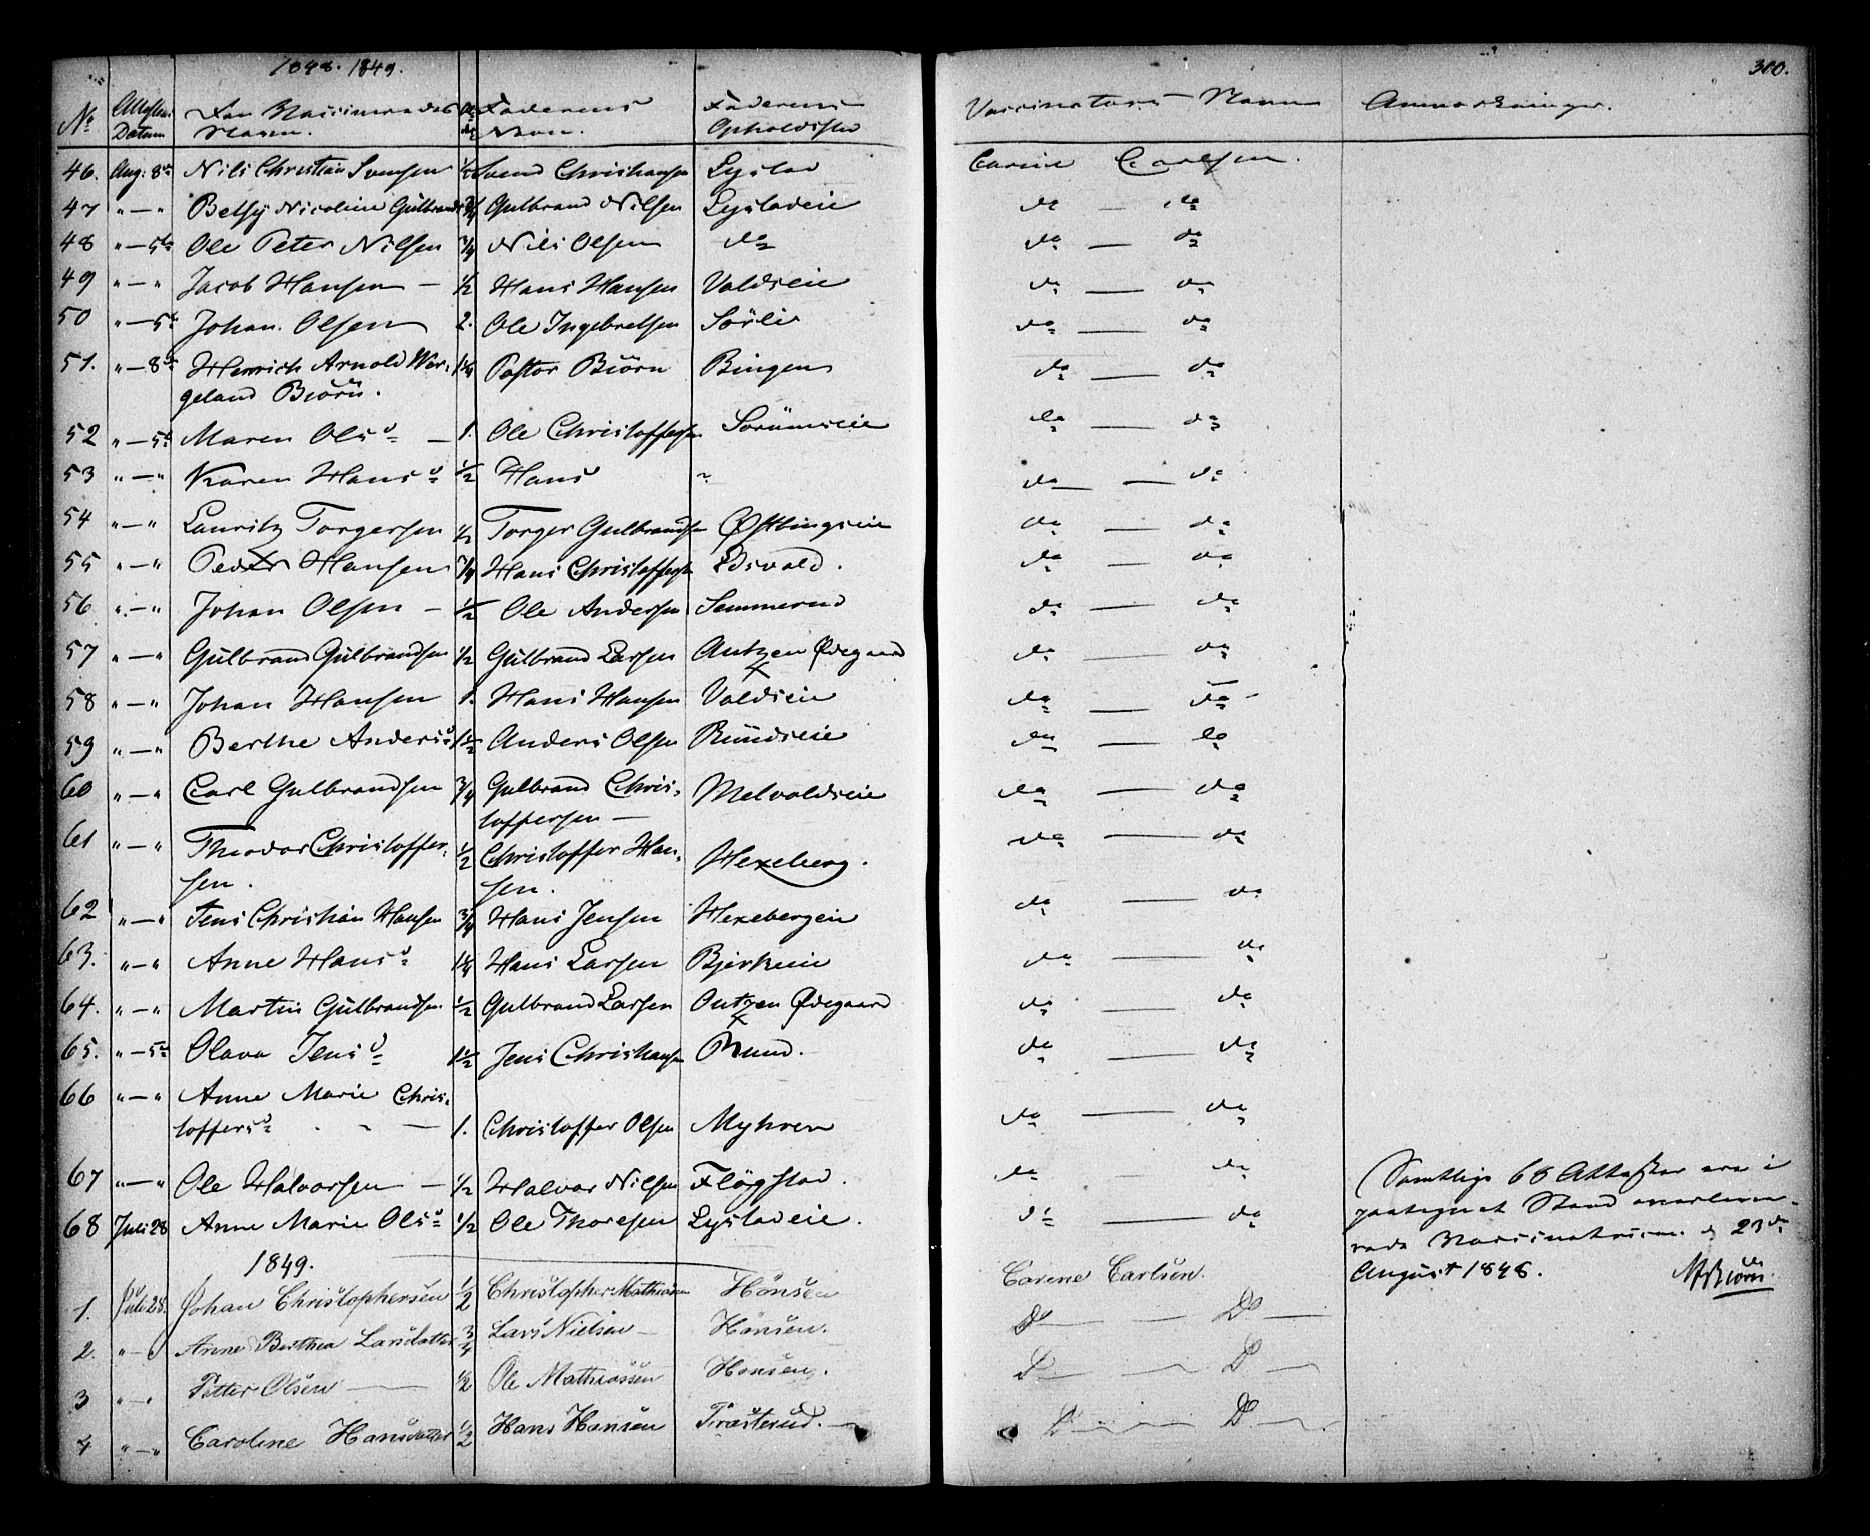 1848. 1849. 300.
No Attestens Datum Den Vaccineredes Navn. Faderens Navn. Faderens Opholdssted Vaccinateurs Navn Anmærkninger.
46. Aug: 8de Nils Christian Svensen 1/2 Svend Christiansen Lystad Carine Carlsen.
47 " — " Betsy Nicoline Gulbrands 3/4 Gulbrand Nilsen Lystadeie do — do
48 " — 5te Ole Peter Nilsen 3/4 Nils Olsen do do — do
49 " — " Jacob Hansen — 1/2 Hans Hansen Valdseie do — do
50 " — 5te Johan Olsen 2. Ole Ingebretsen Sörlie do — do
51. " — 8de Henrich Arnold Wer- 1 1/4 Pastor Biörn Bingen do — do
geland Biörn.
52 " — 5te Maren Olsd — 1. Ole Christoffersen Sörumseie do — do
53 " — " Karen Hansd 1/2 Hans " do — do
54 " — " Lauritz Torgersen 1/2 Torger Gulbrandsen Østbingseie do — do
55 " — " Peder Hansen 3/4 Hans Christoffersen Edsvold. do — do
56 " — " Johan Olsen — 1/2 Ole Andersen Sammerud do — do
57 " — " Gulbrand Gulbrandsen 1/2 Gulbrand Larsen Antzen Ødegaard do — do
58 " — " Johan Hansen 1. Hans Hansen Valdseie do — do
59 " — " Berthe Andersd 1 1/2 Anders Olsen Rundseie do — do
60 " — " Carl Gulbrandsen 3/4 Gulbrand Chris- Melvoldseie do — do
toffersen —
61 " — " Theodor Christoffer- 1/2 Christoffer Han- Hexeberg. do — do
sen. sen.
62 " — " Jens Christian Hansen 3/4 Hans Jensen Hexebergeie do — do
63. " — " Anne Hansd 1 1/4 Hans Larsen Bjerkeeie do — do
64. " — " Martin Gulbrandsen 1/2 Gulbrand Larsen Ontzen Ødegaard do — do
65. " — 5te Olava Jensd 1 1/2 Jens Christiansen Rund. do — do
66 " — " Anne Marie Chris-
toffersd — 1. Christoffer Olsen Myhren do — do
67 " — " Ole Halvorsen — 1/2 Halvor Nilsen Flögstad. do — do Samtlige 68 Attester ere i
68 Juli 28 Anne Marie Olsd 1/2 Ole Thoresen Lystadeie. do — do paategnet Stand overleve-
rede Vaccinatricen d. 23de
August 1848. MBiörn.
1849.
1. Juli 28. Johan Christophersen 1/2 Christopher Mathiasen Hönsen Carene Carlsen.
2. " — " Anne Berthea Larsdatter 3/4 Lars Nielsen — Hönsen. Do — Do —
3 " — " Petter Olsen — 1/2 Ole Mathiassen Hönsen. Do — Do —
4 " — " Caroline Hansdatter 1/2 Hans Hansen Trasterud. — Do — Do —